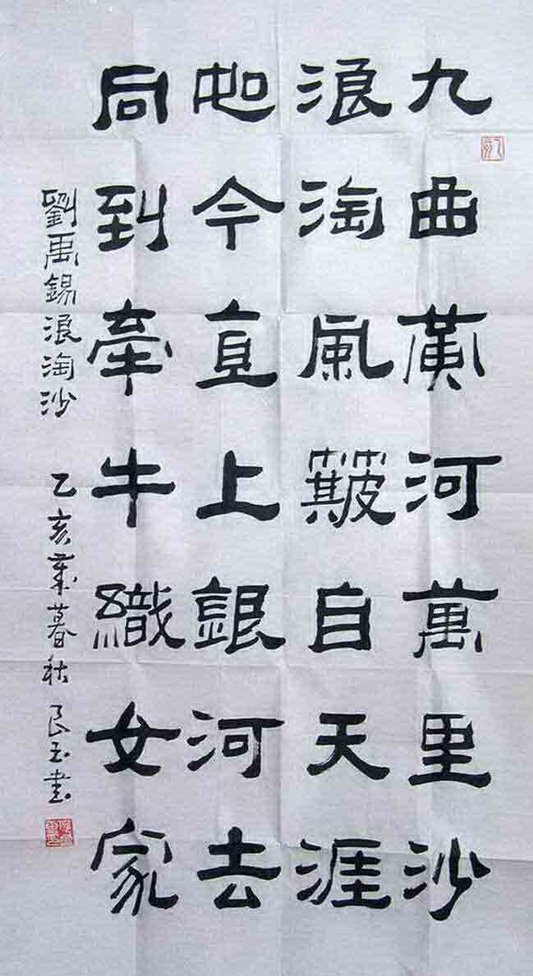 九曲黃河萬里沙
浪淘風簸自天涯
如今直上銀河去
同到牽牛織女家
劉禹錫浪淘沙 乙亥歲暮秋 良玉書